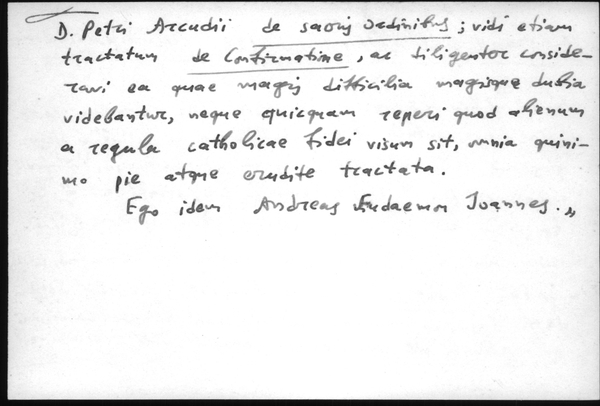 D. Petri Arcudii de sacris ordinibus; vidi etiam
tractatum de Confirmatione, ac diligenter conside-
ravi ea quae magis difficilia magisque dubia
videbantur, neque quicquam reperi quod alienum
a regula catholicae fidei visum sit, omnia quini-
mo pie atque erudite tractata.
Ego idem Andreas Eudaemon Joannes.„